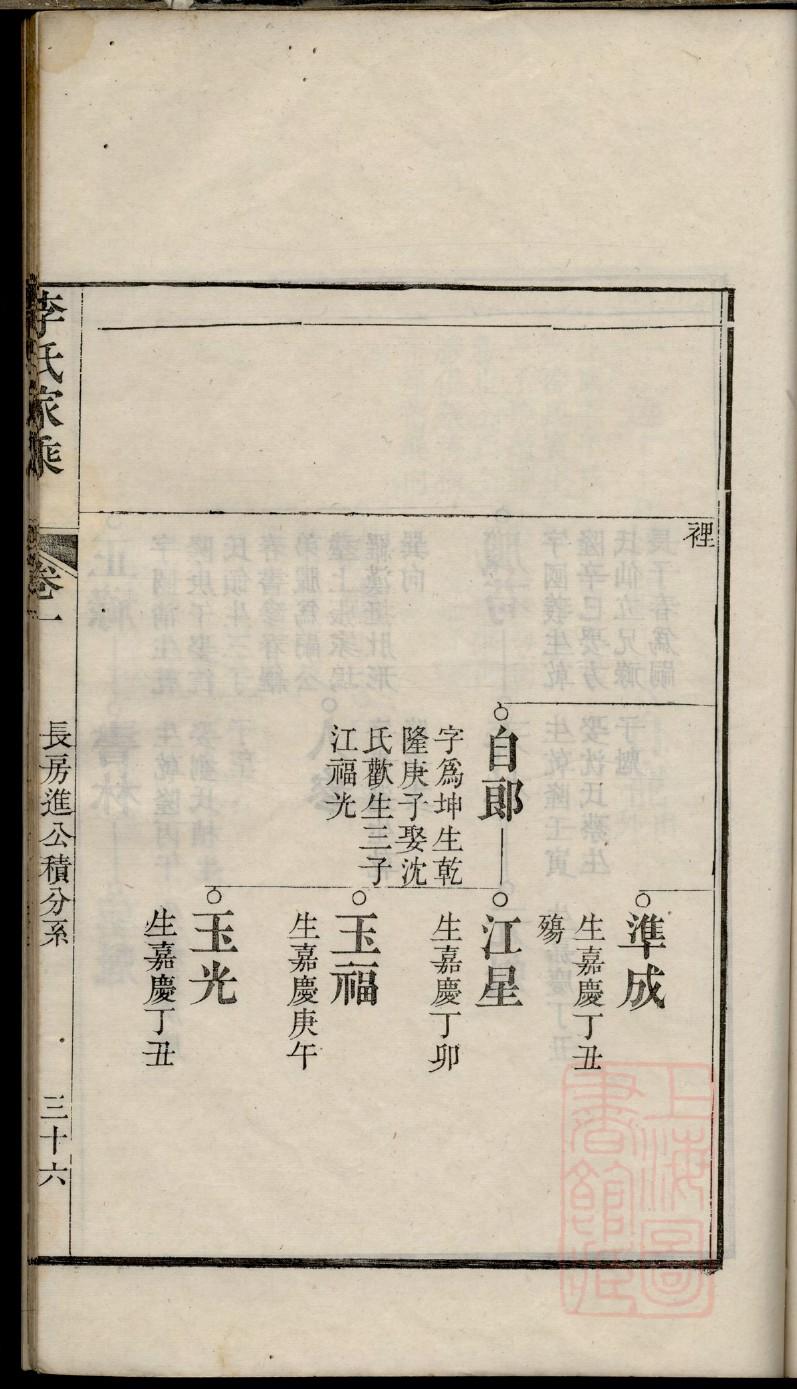 裡
準成
生嘉慶丁丑
殤
自郎
字爲坤生乾
隆庚子娶沈
氏歡生三子
江福光
江星
生嘉慶丁卯
玉福
生嘉慶庚午
玉光
生嘉慶丁丑
李氏家乘
卷一
長房進公積分系
三十六
上海圖
書館藏